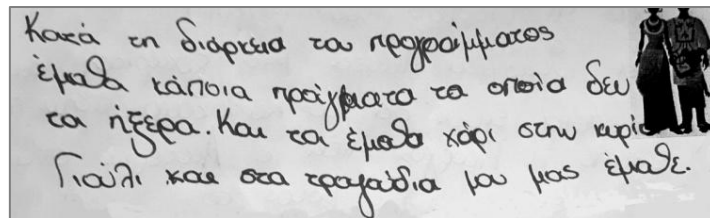 Κατά τη διάρκεια του προγράμματος
έμαθα κάποια πράγματα τα οποία δεν
τα ήξερα. Και τα έμαθα χάρι στην κυρία
Γιούλι και στα τραγούδια που μας έμαθε.